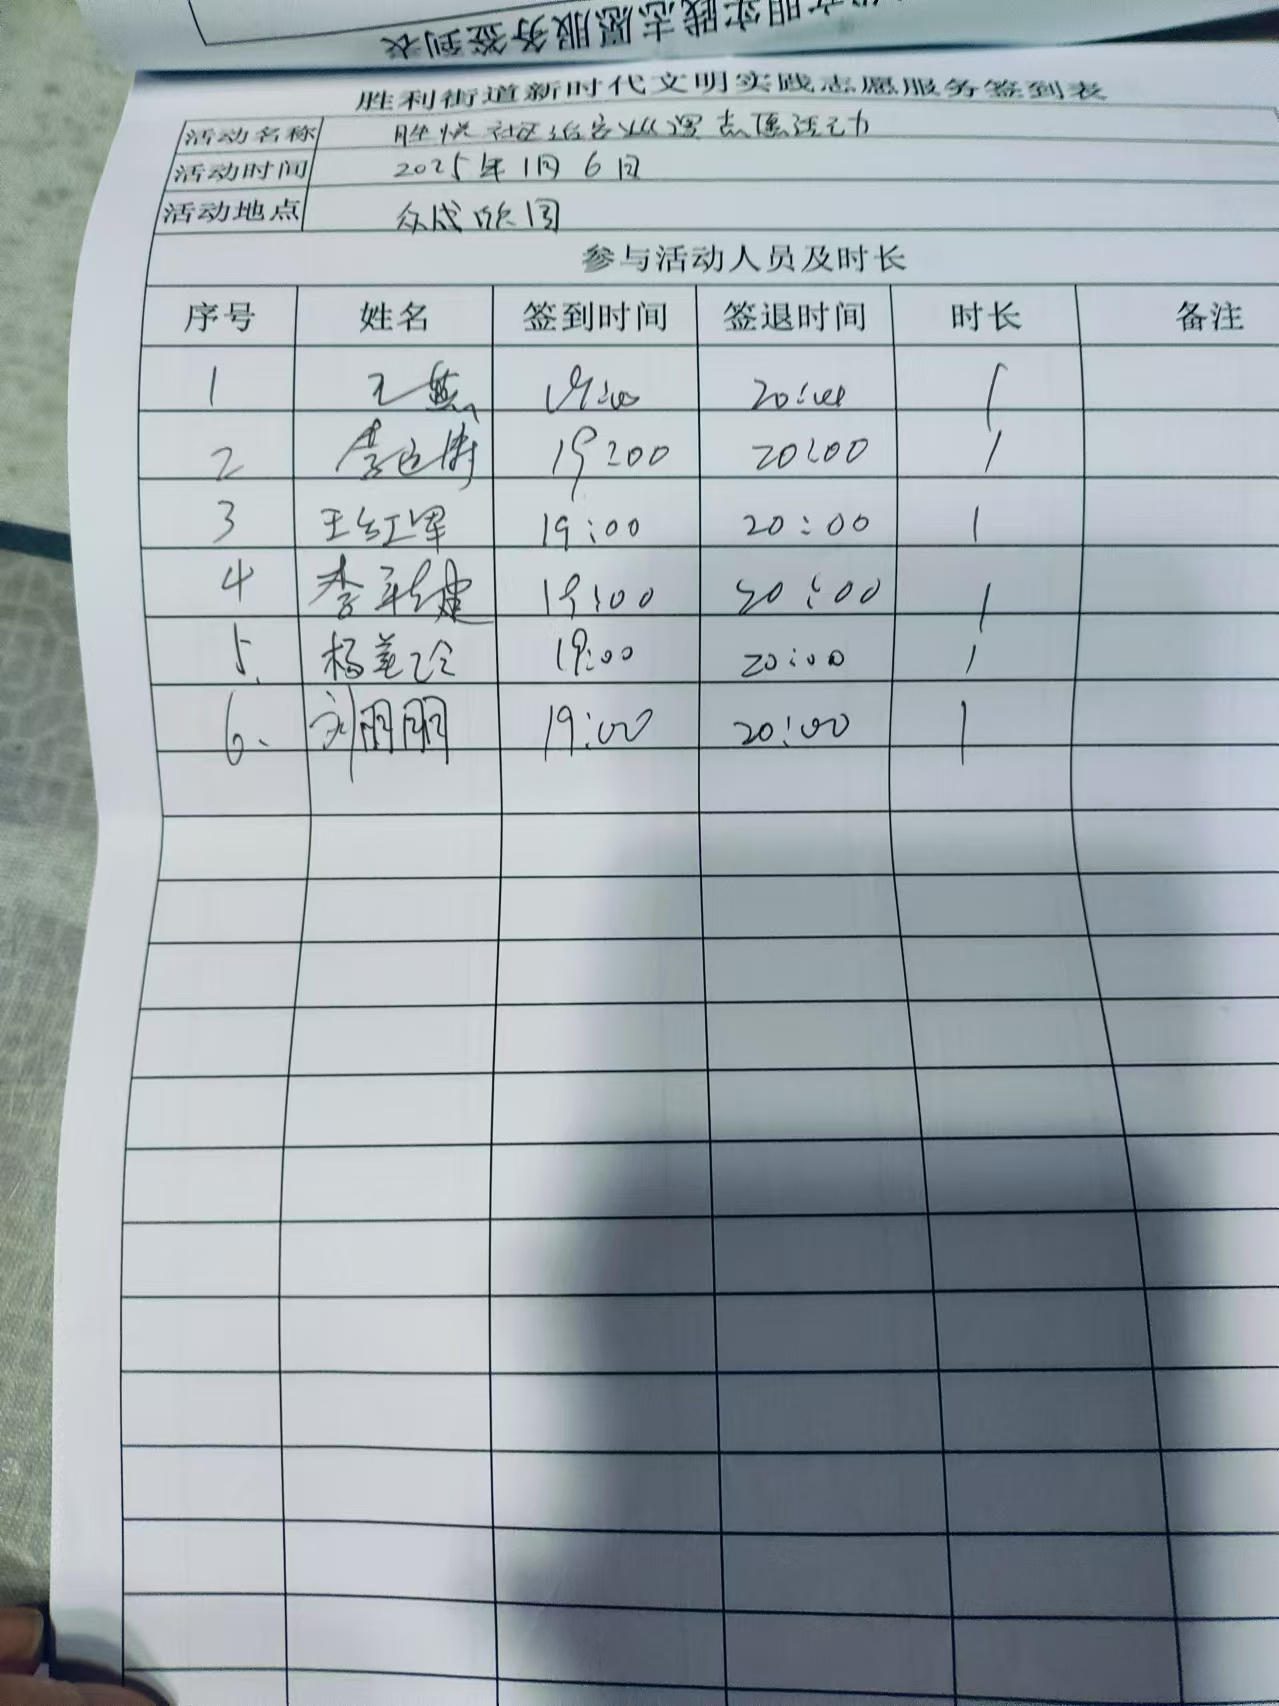 志愿服务签到表
胜利街道新时代文明实践志愿服务签到表
活动名称 胜悦社区治安巡逻志愿活动
活动时间 2025年1月6日
活动地点 众成欣园
参与活动人员及时长
序号 姓名 签到时间 签退时间 时长 备注
1 王燕 19:00 20:00 1
2 19:00 20:00 1
3 王红军 19:00 20:00 1
4 李 建 19:00 20:00 1
5. 杨美玲 19:00 20:00 1
6、 刘朋朋 19:00 20:00 1